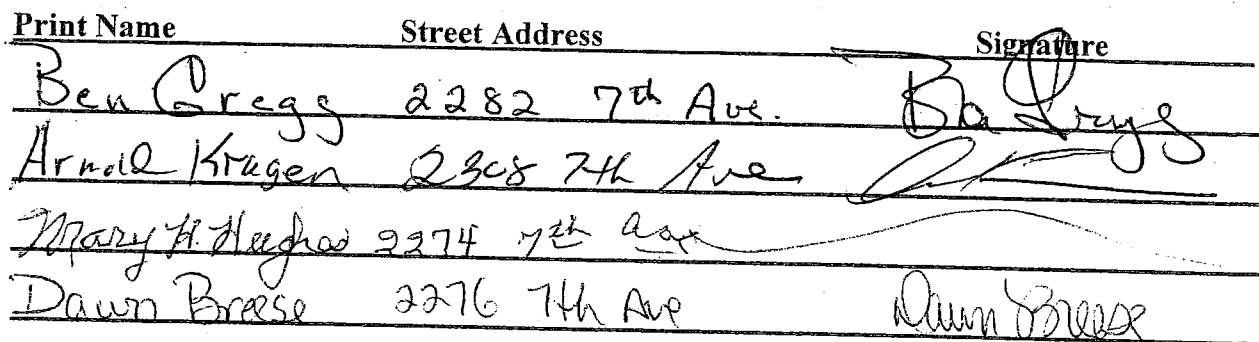 Print Name Street Address Signature
Ben Gregg 2282 7th Ave. Ben Gregg
Arnold Kragen 2308 7th Ave
Mary H. Hughes 2274 7th Ave
Dawn Breese 2276 7th Ave Dawn Breese